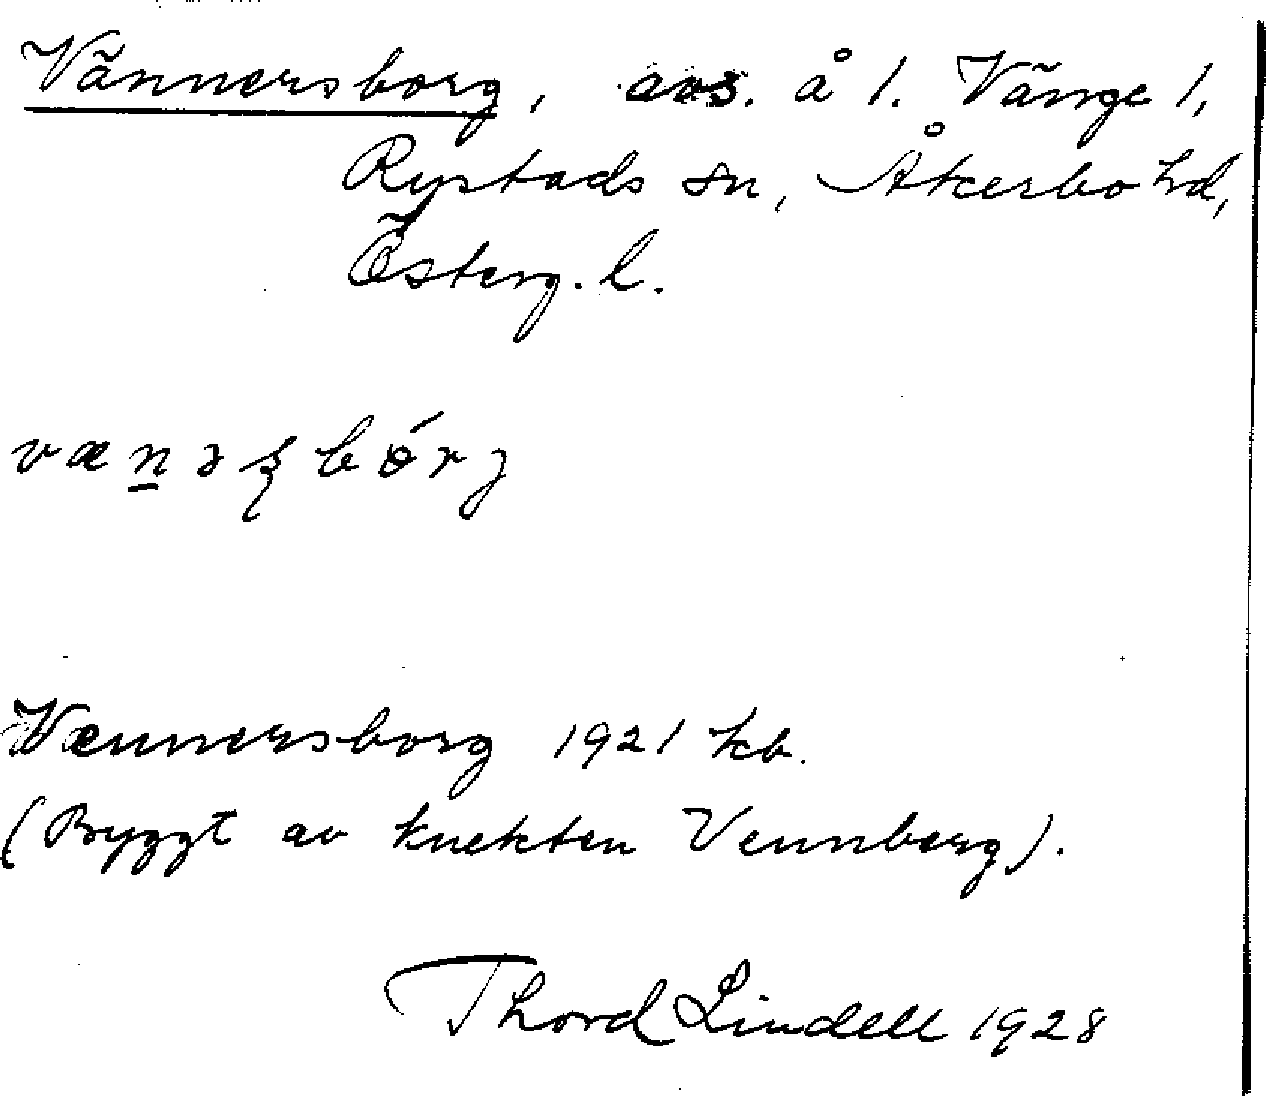 Vännersborg, avs. å l. Vänge 1,
Rystads sn, Åkerbo hd,
Österg. l.
vænəʂbórj
Vennersborg 1921 kb.
(Byggt av knekten Vennberg).
Thord Lindell 1928